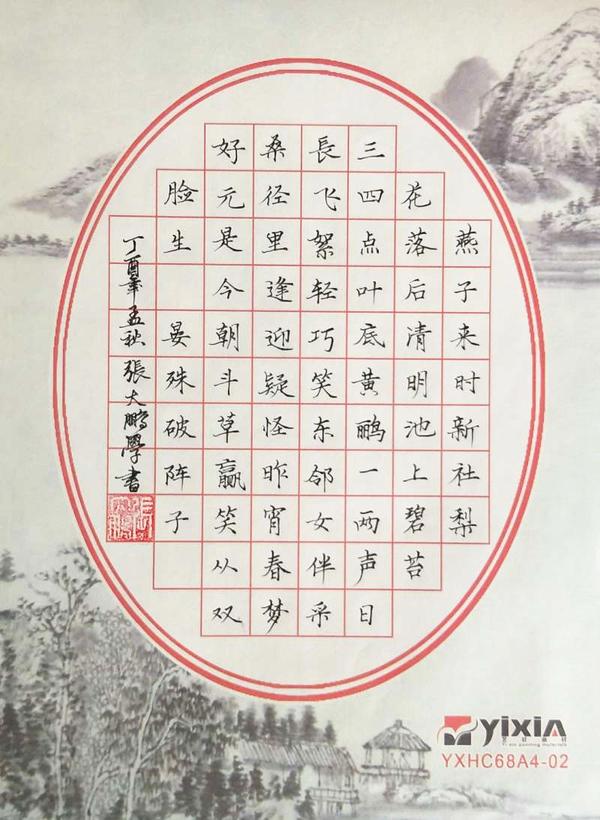 燕子来时新社梨
花落后清明池上碧苔
三四点叶底黄鹂一两声日
長飞絮轻巧笑东邻女伴采
桑径里逢迎疑怪昨宵春梦
好元是今朝斗草赢笑从双
脸生 晏殊破阵子
丁酉年孟秋張大鹏學書
yixin
YXHC68A4-02